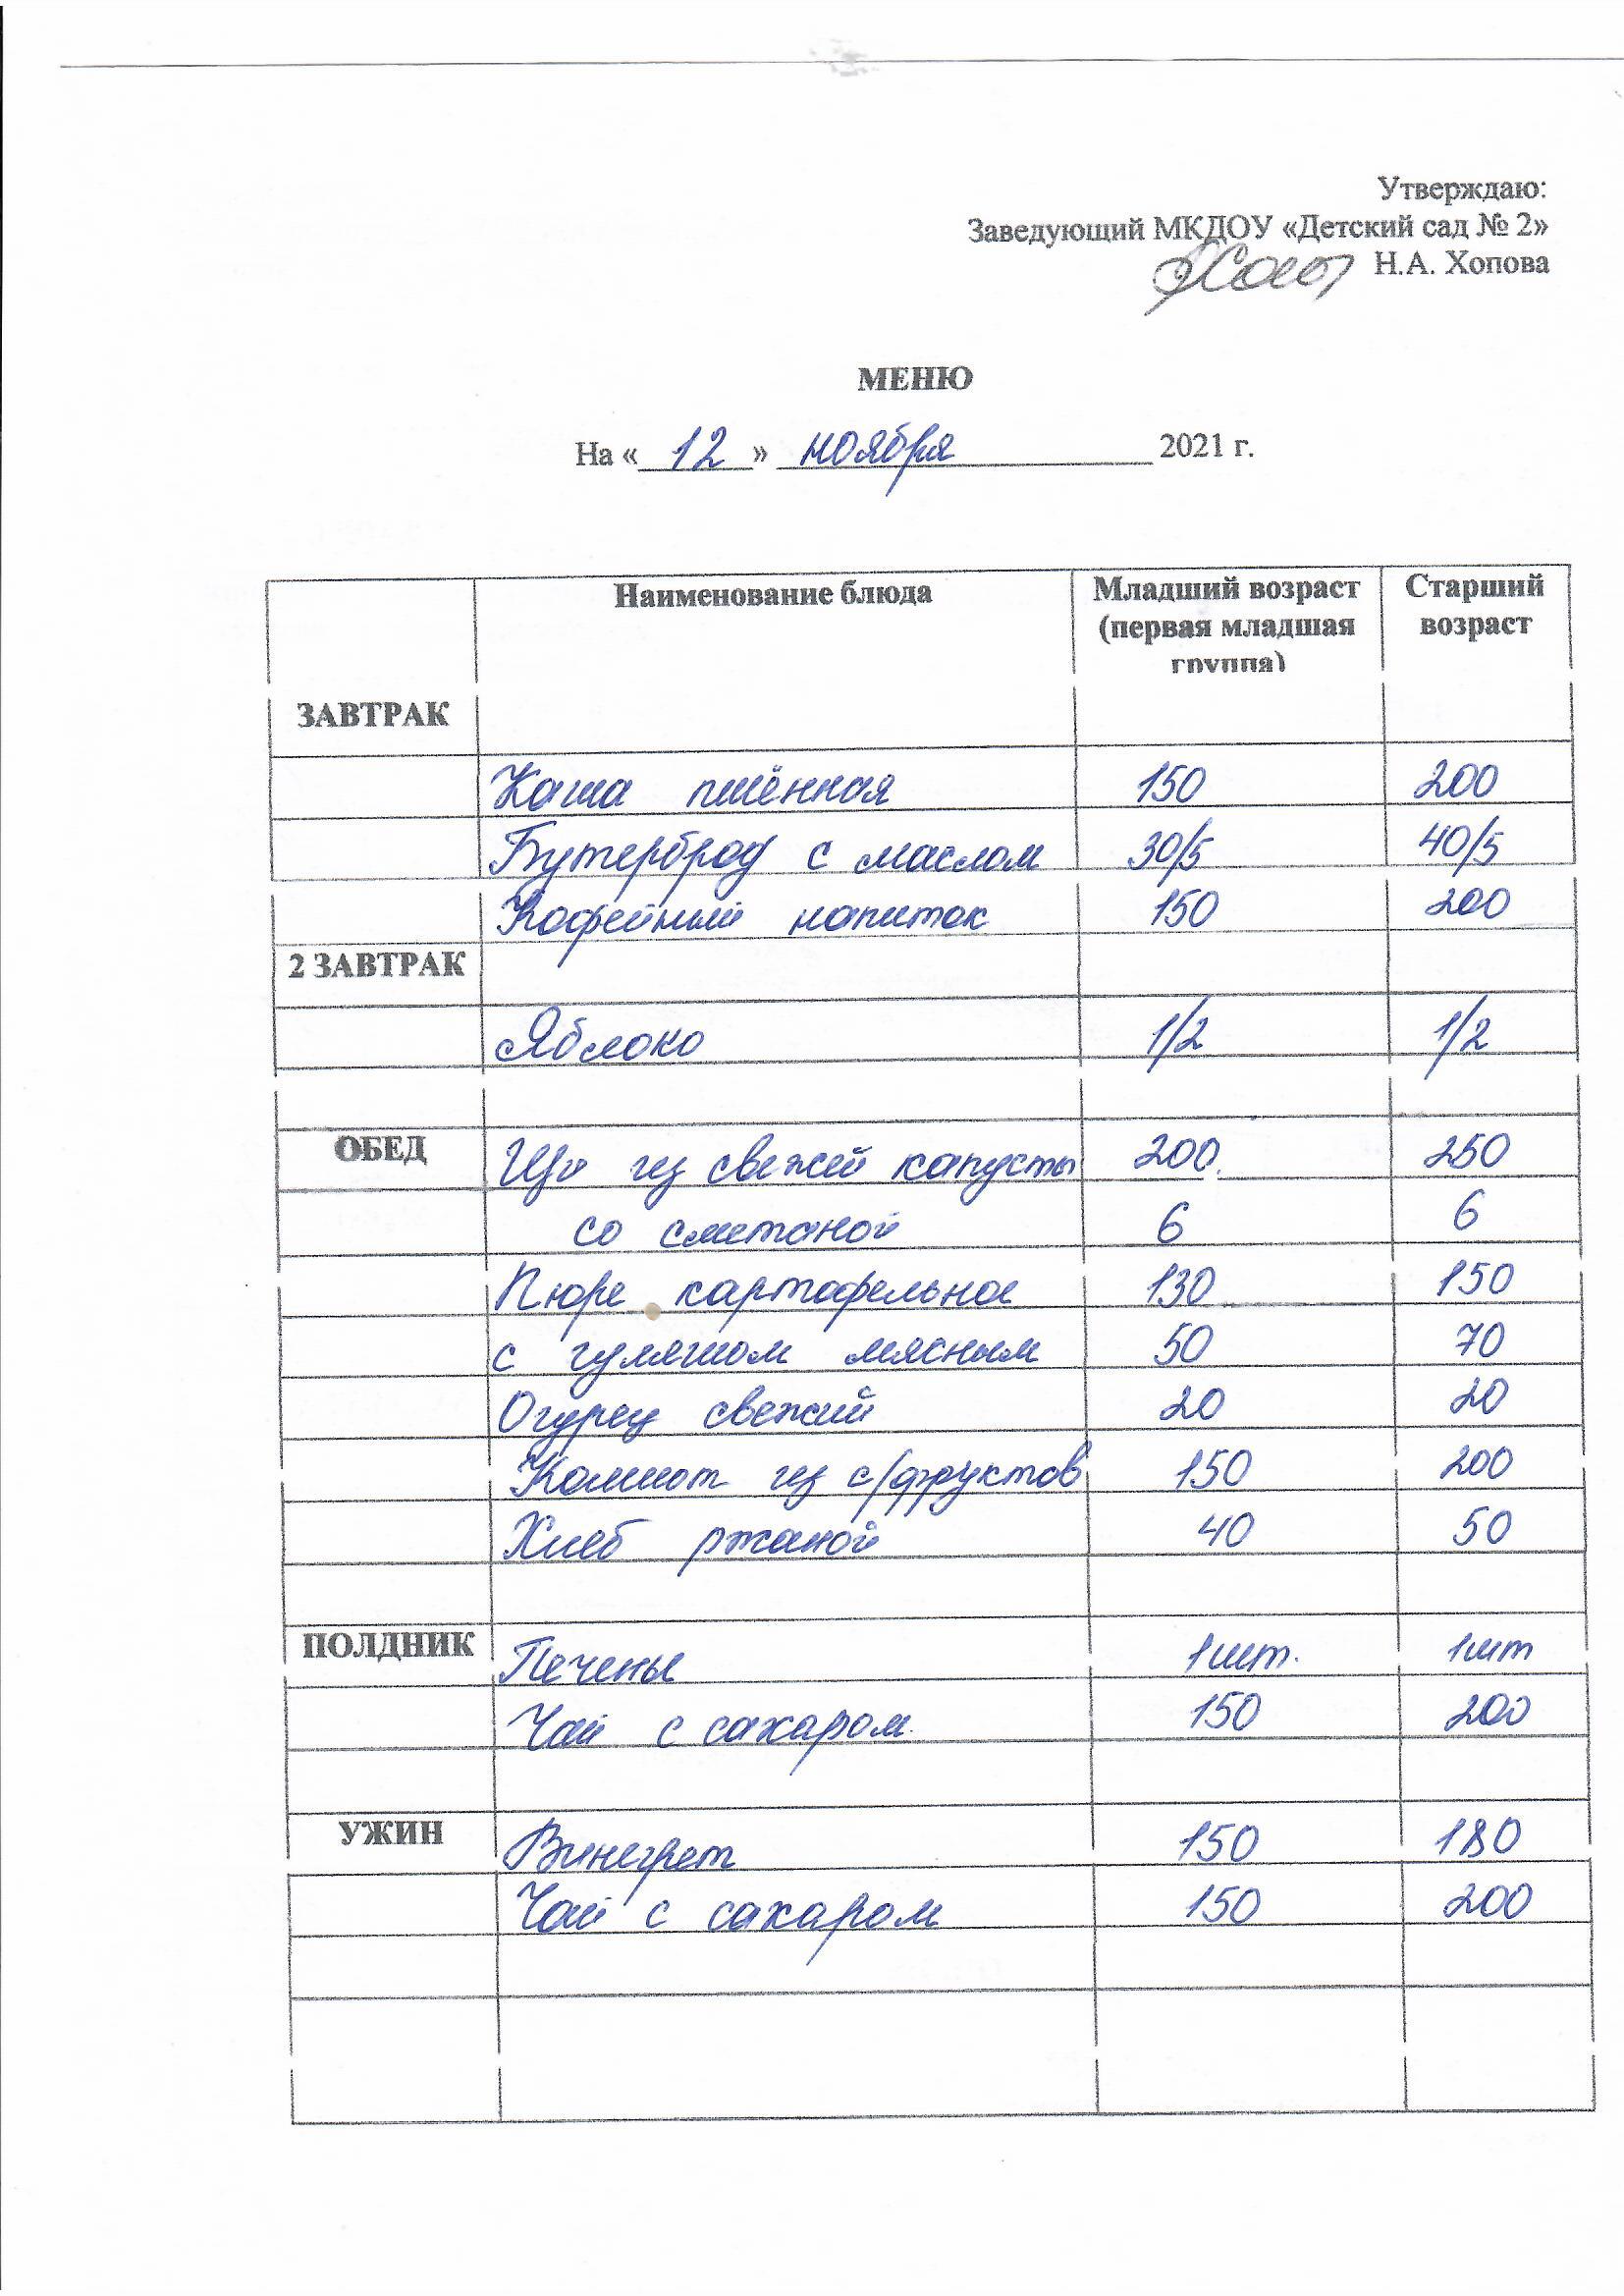 Утверждаю:
Заведующий МКДОУ «Детский сад № 2»
Н.А. Хопова
МЕНЮ
На « 12 » ноября 2021 г.
Наименование блюда Младший возраст (первая младшая группа) Старший возраст
ЗАВТРАК
Каша пшённая 150 200
Бутерброд с маслом 30/5 40/5
Кофейный напиток 150 200
2 ЗАВТРАК
Яблоко 1/2 1/2
ОБЕД Щи из свежей капусты 200 250
со сметаной 6 6
Пюре картофельное 130 150
с гуляшом мясным 50 70
Огурец свежий 20 20
Компот из с/фруктов 150 200
Хлеб ржаной 40 50
ПОЛДНИК Печенье 1шт. 1шт
Чай с сахаром 150 200
УЖИН Винегрет 150 180
Чай с сахаром 150 200